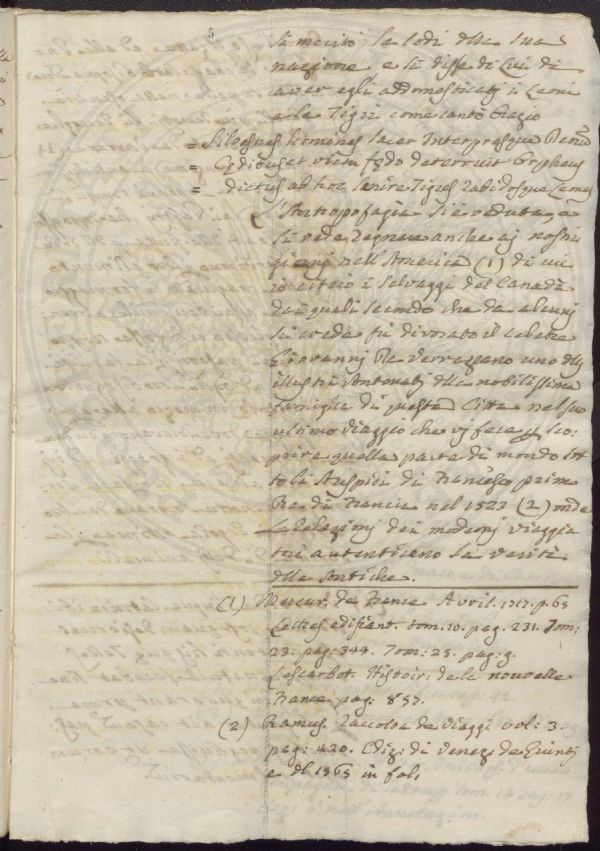 5
si meritò la lode della sua
nazione e si disse di lui di
aver egli addomesticati i Leoni
e le Tigri come cantò Orazio
= Silvestres homines sacer Interpresque Deorũ
= Cędibus et victu fędo deterruit Orpheus
= dictus ab hoc lenire Tigres rabidosque Leones
L'Antropofagia si è veduta, e
si vede regnare anche aj nostri
giorni nell'America (1) di cui
i selvaggi del Canadà
dai quali secondo che da alcunj
si crede fù divorato il celebre
Giovannj da Verrazzano uno degli
illustri Antenati della nobilissima
famiglia di questa Città nel suo
ultimo viaggio che vj fece p sco:
prire quella parte di mondo sot
to li Auspici di Francesco primo
Re di Francia nel 1523 (2) onde
le relazionj dei modernj viaggia
tori autenticano la verità
delle Antiche.
(1) Mercur. de France Avril. 1717. p. 65
Lettres edifiant. tom. 10. pag. 231. Tom:
23. pag: 344. Tom: 25. pag: 9.
Lescarbot. Histoir: de la nouvelle
France pag: 857.
(2) Ramus. raccolta de viaggi vol: 3.
pag: 420. Ediz: di Venez. de Giuntj
e dl 1565 in fol.